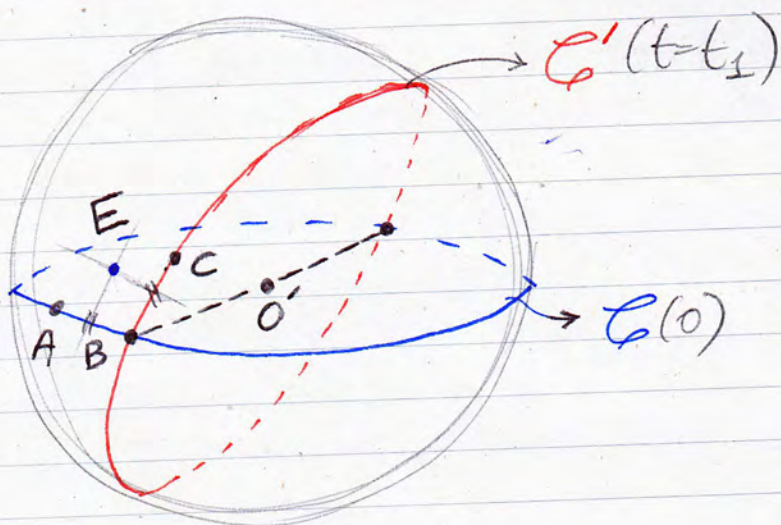 𝒞' (t=t₁)
E
C
O'
A
B
𝒞(0)